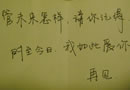 管未来怎样，请你记得
时至今日，我如此爱你
再见